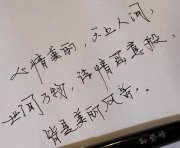 心情美丽，天上人间，
世间万物，诗情画意般，
皆是美丽风景。。